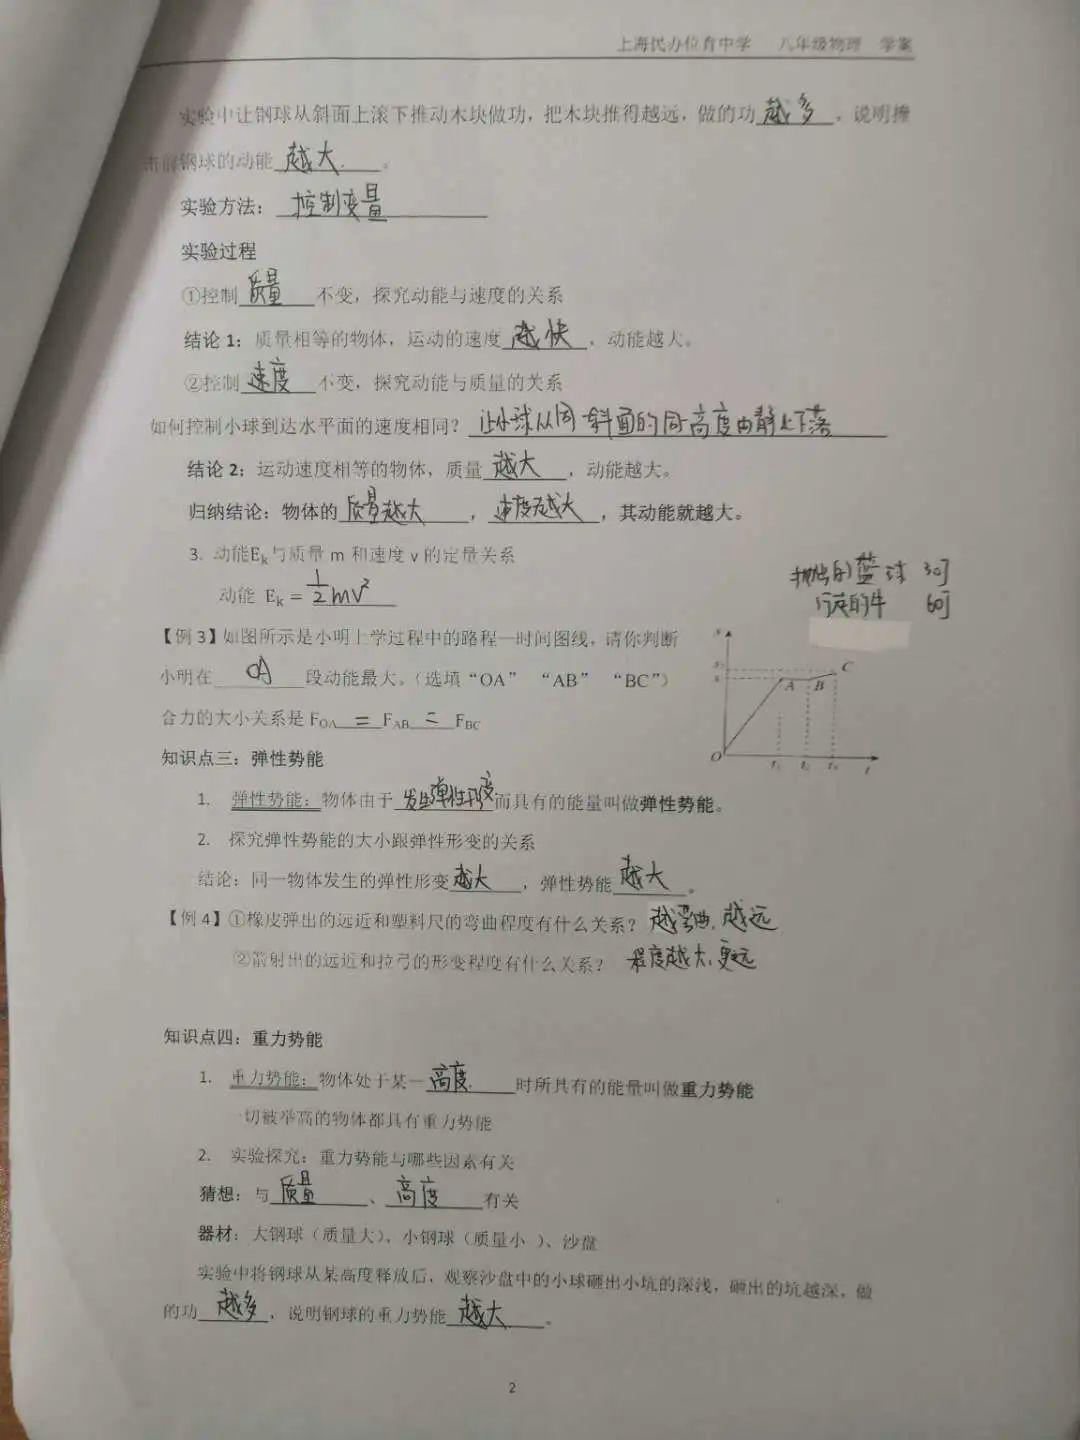 上海民办位育中学 八年级物理 学案
实验中让钢球从斜面上滚下推动木块做功，把木块推得越远，做的功越多，说明撞
击前钢球的动能越大。
实验方法：控制变量
实验过程
①控制质量不变，探究动能与速度的关系
结论1：质量相等的物体，运动的速度越快，动能越大。
②控制速度不变，探究动能与质量的关系
如何控制小球到达水平面的速度相同？让小球从同斜面的同高度由静止下落
结论2：运动速度相等的物体，质量越大，动能越大。
归纳结论：物体的质量越大，速度越大，其动能就越大。
3. 动能Ek与质量 m 和速度 v 的定量关系
抛出的篮球 30J
动能 Ek = 1/2 mv²
行走的牛 60J
【例3】如图所示是小明上学过程中的路程—时间图线，请你判断
小明在 OA 段动能最大。（选填“OA” “AB” “BC”）
合力的大小关系是 FOA = FAB = FBC
s
A B C
O t₁ t₂ t₃ t
知识点三：弹性势能
1. 弹性势能：物体由于发生弹性形变而具有的能量叫做弹性势能。
2. 探究弹性势能的大小跟弹性形变的关系
结论：同一物体发生的弹性形变越大，弹性势能越大。
【例4】①橡皮弹出的远近和塑料尺的弯曲程度有什么关系？越弯曲，越远
②箭射出的远近和拉弓的形变程度有什么关系？程度越大，更远
知识点四：重力势能
1. 重力势能：物体处于某一高度时所具有的能量叫做重力势能
一切被举高的物体都具有重力势能
2. 实验探究：重力势能与哪些因素有关
猜想：与质量、高度有关
器材：大钢球（质量大）、小钢球（质量小 ）、沙盘
实验中将钢球从某高度释放后，观察沙盘中的小球砸出小坑的深浅，砸出的坑越深，做
的功越多，说明钢球的重力势能越大。
2